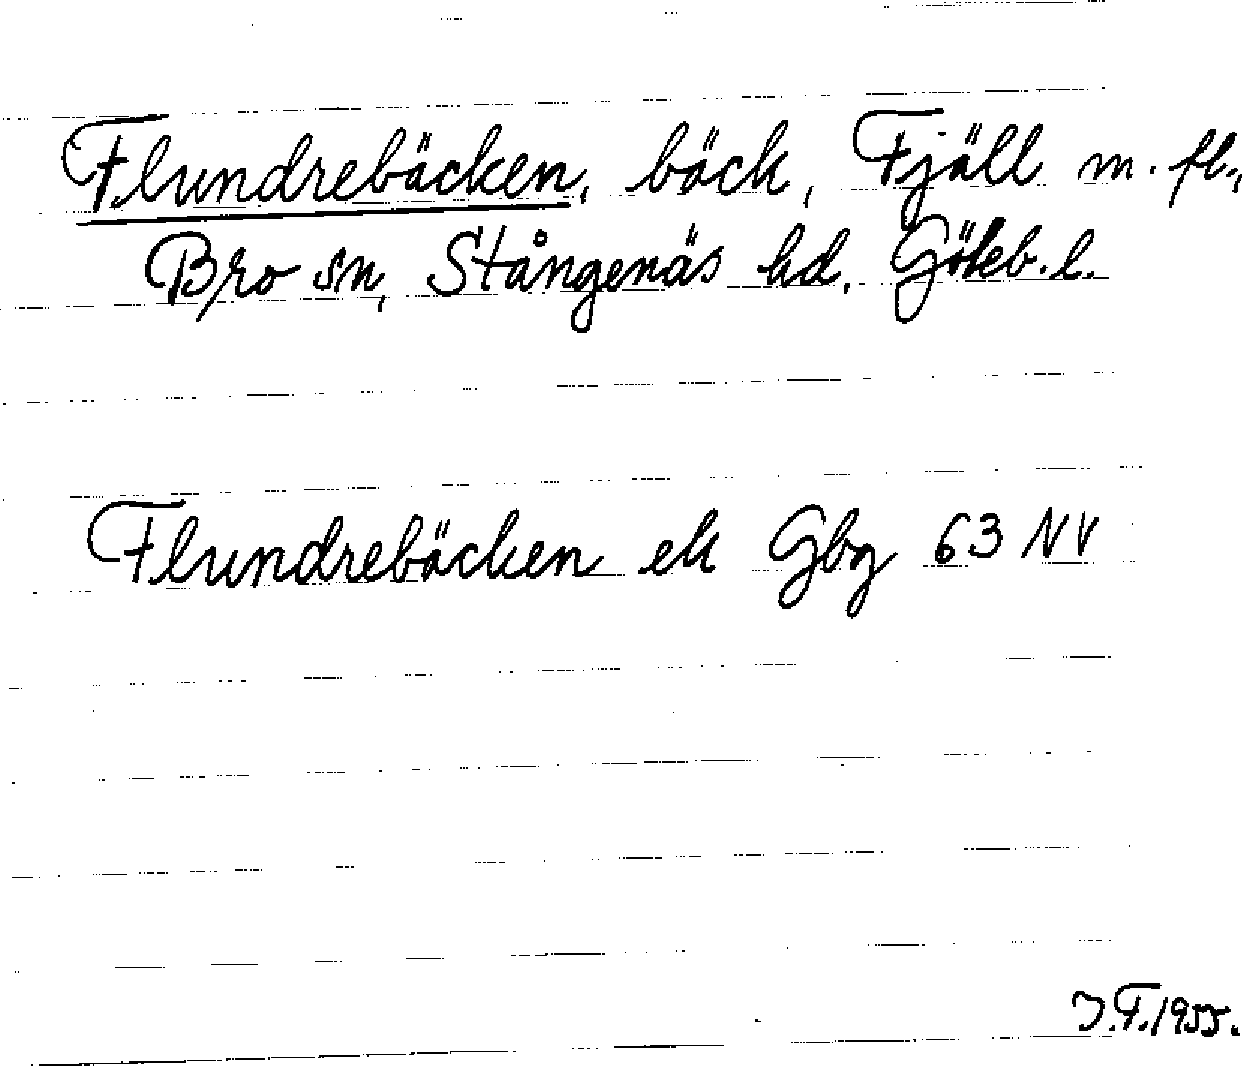 Flundrebäcken, bäck, Fjäll m. fl.,
Bro sn, Stångenäs hd. Göteb. l.
Flundrebäcken ek Gbg 63 NV
J.F. 1955.